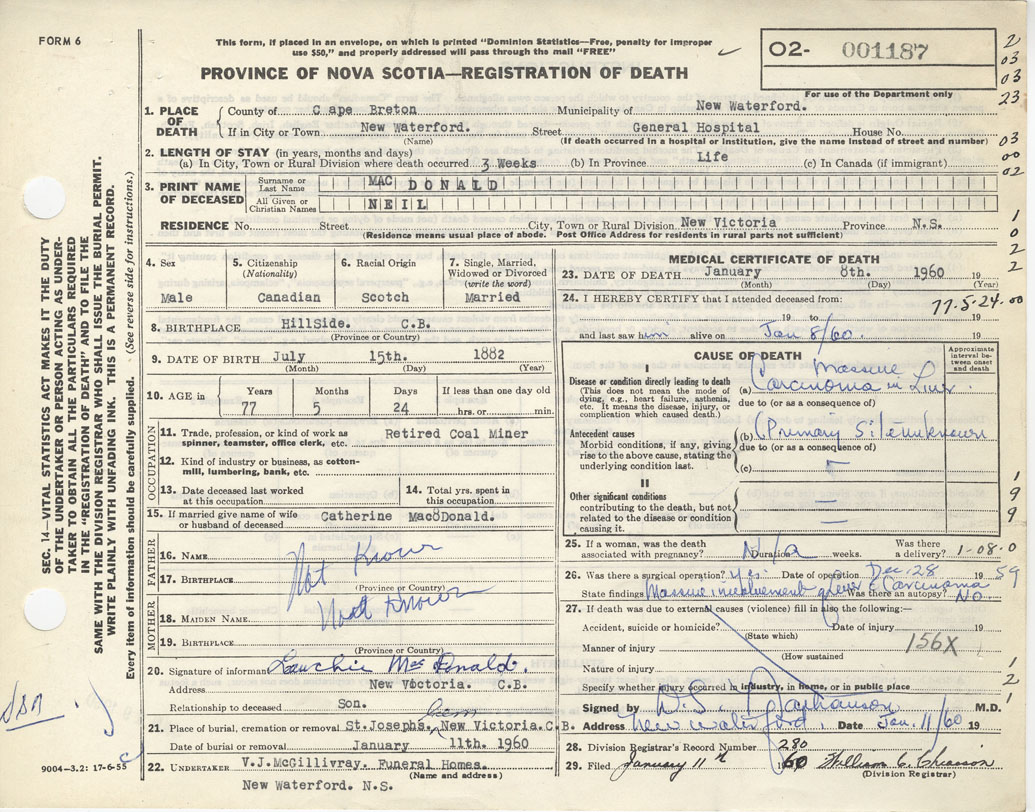 FORM 6
This form, if placed in an envelope, on which is printed "Dominion Statistics—Free, penalty for improper
use $50," and properly addressed will pass through the mail "FREE"
O2- 001187
For use of the Department only
PROVINCE OF NOVA SCOTIA—REGISTRATION OF DEATH
2
03
03
23
03
00
02
1
0
2
2
1. PLACE OF DEATH
County of Cape Breton Municipality of New Waterford.
If in City or Town New Waterford. Street General Hospital House No.
(Name) (If death occurred in a hospital or institution, give the name instead of street and number)
2. LENGTH OF STAY (in years, months and days)
(a) In City, Town or Rural Division where death occurred 3 Weeks (b) In Province Life (c) In Canada (if immigrant)
3. PRINT NAME OF DECEASED
Surname or Last Name MAC DONALD
All Given or Christian Names NEIL
RESIDENCE No. Street City, Town or Rural Division New Victoria Province N.S.
(Residence means usual place of abode. Post Office Address for residents in rural parts not sufficient)
SEC. 14—VITAL STATISTICS ACT MAKES IT THE DUTY
OF THE UNDERTAKER OR PERSON ACTING AS UNDER-
TAKER TO OBTAIN ALL THE PARTICULARS REQUIRED
IN THE "REGISTRATION OF DEATH" AND FILE THE
SAME WITH THE DIVISION REGISTRAR WHO SHALL ISSUE THE BURIAL PERMIT.
WRITE PLAINLY WITH UNFADING INK. THIS IS A PERMANENT RECORD.
Every item of information should be carefully supplied. (See reverse side for instructions.)
4. Sex
Male
5. Citizenship
(Nationality)
Canadian
6. Racial Origin
Scotch
7. Single, Married,
Widowed or Divorced
(write the word)
Married
8. BIRTHPLACE HillSide. C.B.
(Province or Country)
9. DATE OF BIRTH July 15th. 1882
(Month) (Day) (Year)
10. AGE in
Years Months Days If less than one day old
77 5 24 hrs. or min.
OCCUPATION
11. Trade, profession, or kind of work as
spinner, teamster, office clerk, etc. Retired Coal Miner
12. Kind of industry or business, as cotton-
mill, lumbering, bank, etc.
13. Date deceased last worked
at this occupation
14. Total yrs. spent in
this occupation
15. If married give name of wife
or husband of deceased Catherine MacDonald.
FATHER
16. Name Not Known
17. BIRTHPLACE
(Province or Country)
MOTHER
18. MAIDEN NAME Not Known
19. BIRTHPLACE
(Province or Country)
20. Signature of informant Lauchie MacDonald.
Address New Victoria. C.B.
Relationship to deceased Son.
21. Place of burial, cremation or removal St.Josephs, Cem New Victoria.C.B.
Date of burial or removal January 11th. 1960
22. UNDERTAKER V.J.McGillivray. Funeral Homes.
(Name and address)
New Waterford. N.S.
9004-3.2: 17-6-55
MEDICAL CERTIFICATE OF DEATH
23. DATE OF DEATH January 8th. 1960
(Month) (Day) (Year)
24. I HEREBY CERTIFY that I attended deceased from: 77-5-24.00
19 to 19
and last saw him alive on Jan 8/60. 19
CAUSE OF DEATH
Approximate
interval be-
tween onset
and death
I
Disease or condition directly leading to death
(This does not mean the mode of
dying, e.g., heart failure, asthenia,
etc. It means the disease, injury, or
complication which caused death.)
(a) Massive
Carcinoma in Liver
due to (or as a consequence of)
Antecedent causes
Morbid conditions, if any, giving
rise to the above cause, stating the
underlying condition last.
(b) (Primary Site unknown
due to (or as a consequence of)
(c)
II
Other significant conditions
contributing to the death, but not
related to the disease or condition
causing it.
1
9
9
25. If a woman, was the death
associated with pregnancy? N/a Duration weeks. Was there
a delivery? 1-08.0
26. Was there a surgical operation? Yes Date of operation Dec 28 1959
State findings Massive involvement liver c Carcinoma Was there an autopsy? No
27. If death was due to external causes (violence) fill in also the following:—
Accident, suicide or homicide? Date of injury 19
(State which)
Manner of injury 156X
(How sustained
Nature of injury
Specify whether injury occurred in industry, in home, or in public place
1
2
1
Signed by M.D.
Address New Waterford. Date Jan. 11/60 19
28. Division Registrar's Record Number 280
29. Filed January 11th 1960 William C. Chiasson
(Division Registrar)